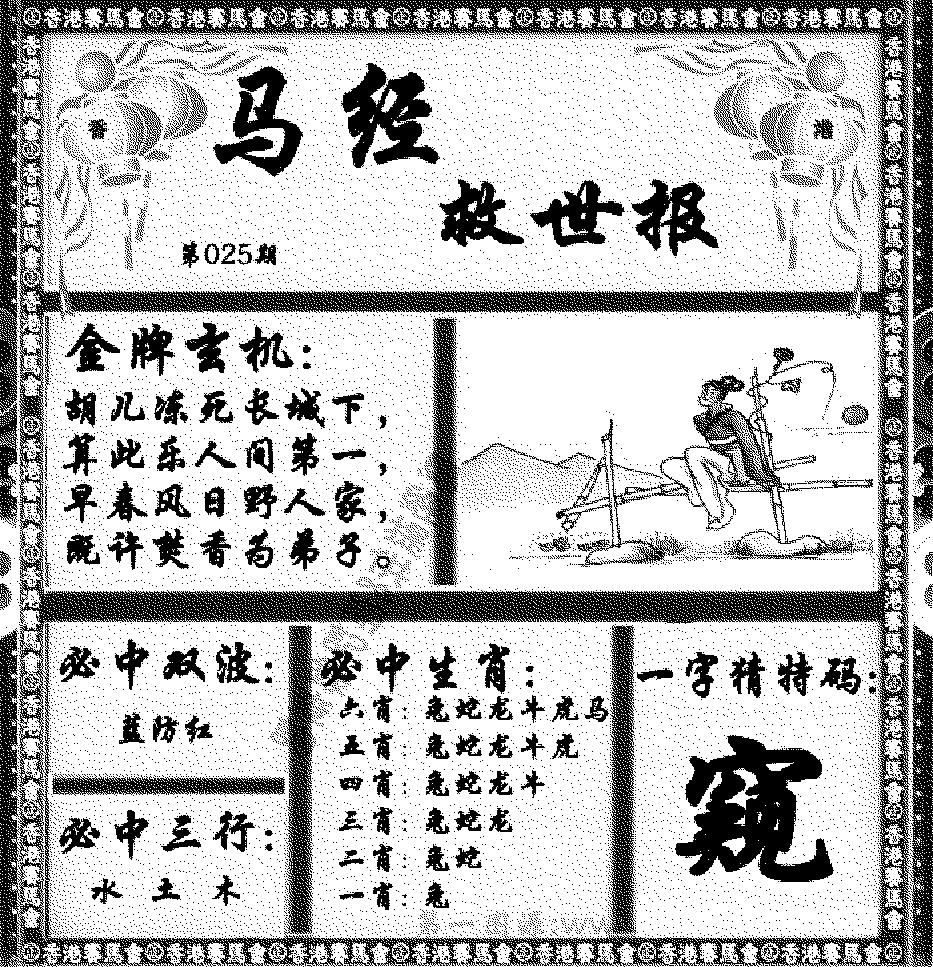 香港赛馬會 香港赛馬會 香港赛馬會 香港赛馬會 香港赛馬會 香港赛馬會 香港赛馬會
香
港
马经
救世报
第025期
金牌玄机:
胡儿冻死长城下,
算此乐人间第一,
早春风日野人家,
既许焚香为弟子。
必中双波:
蓝防红
必中三行:
水 土 木
必中生肖:
六肖: 兔蛇龙牛虎马
五肖: 兔蛇龙牛虎
四肖: 兔蛇龙牛
三肖: 兔蛇龙
二肖: 兔蛇
一肖: 兔
一字猜特码:
窥
香港赛馬會 香港赛馬會 香港赛馬會 香港赛馬會 香港赛馬會 香港赛馬會 香港赛馬會